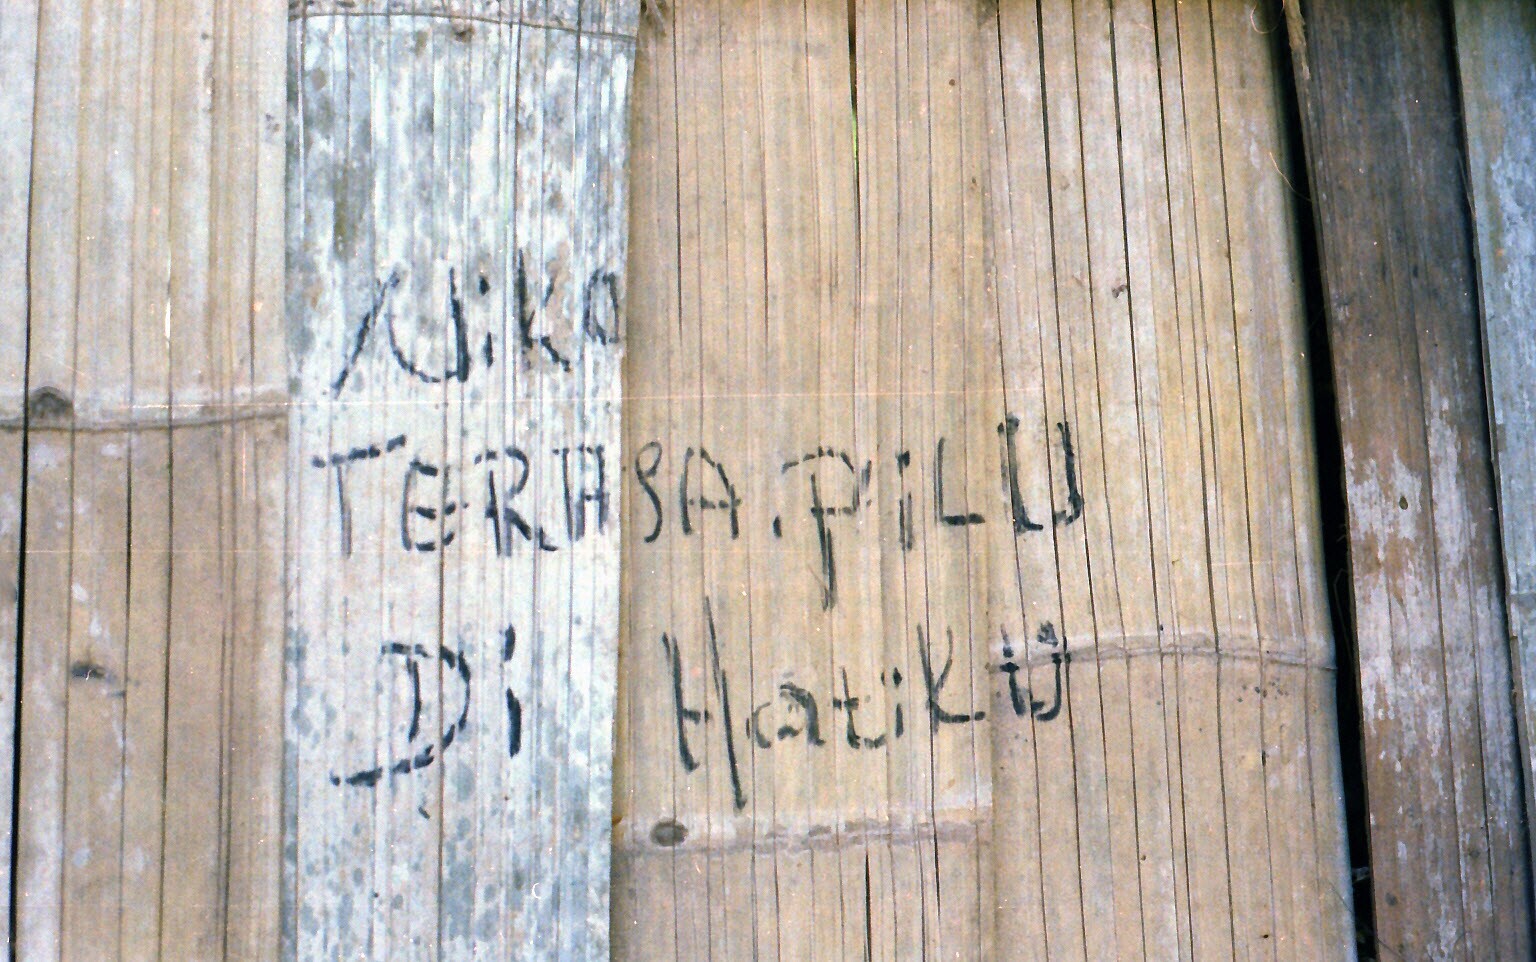 Niko
TERASA.PiLU
Di HatiKU